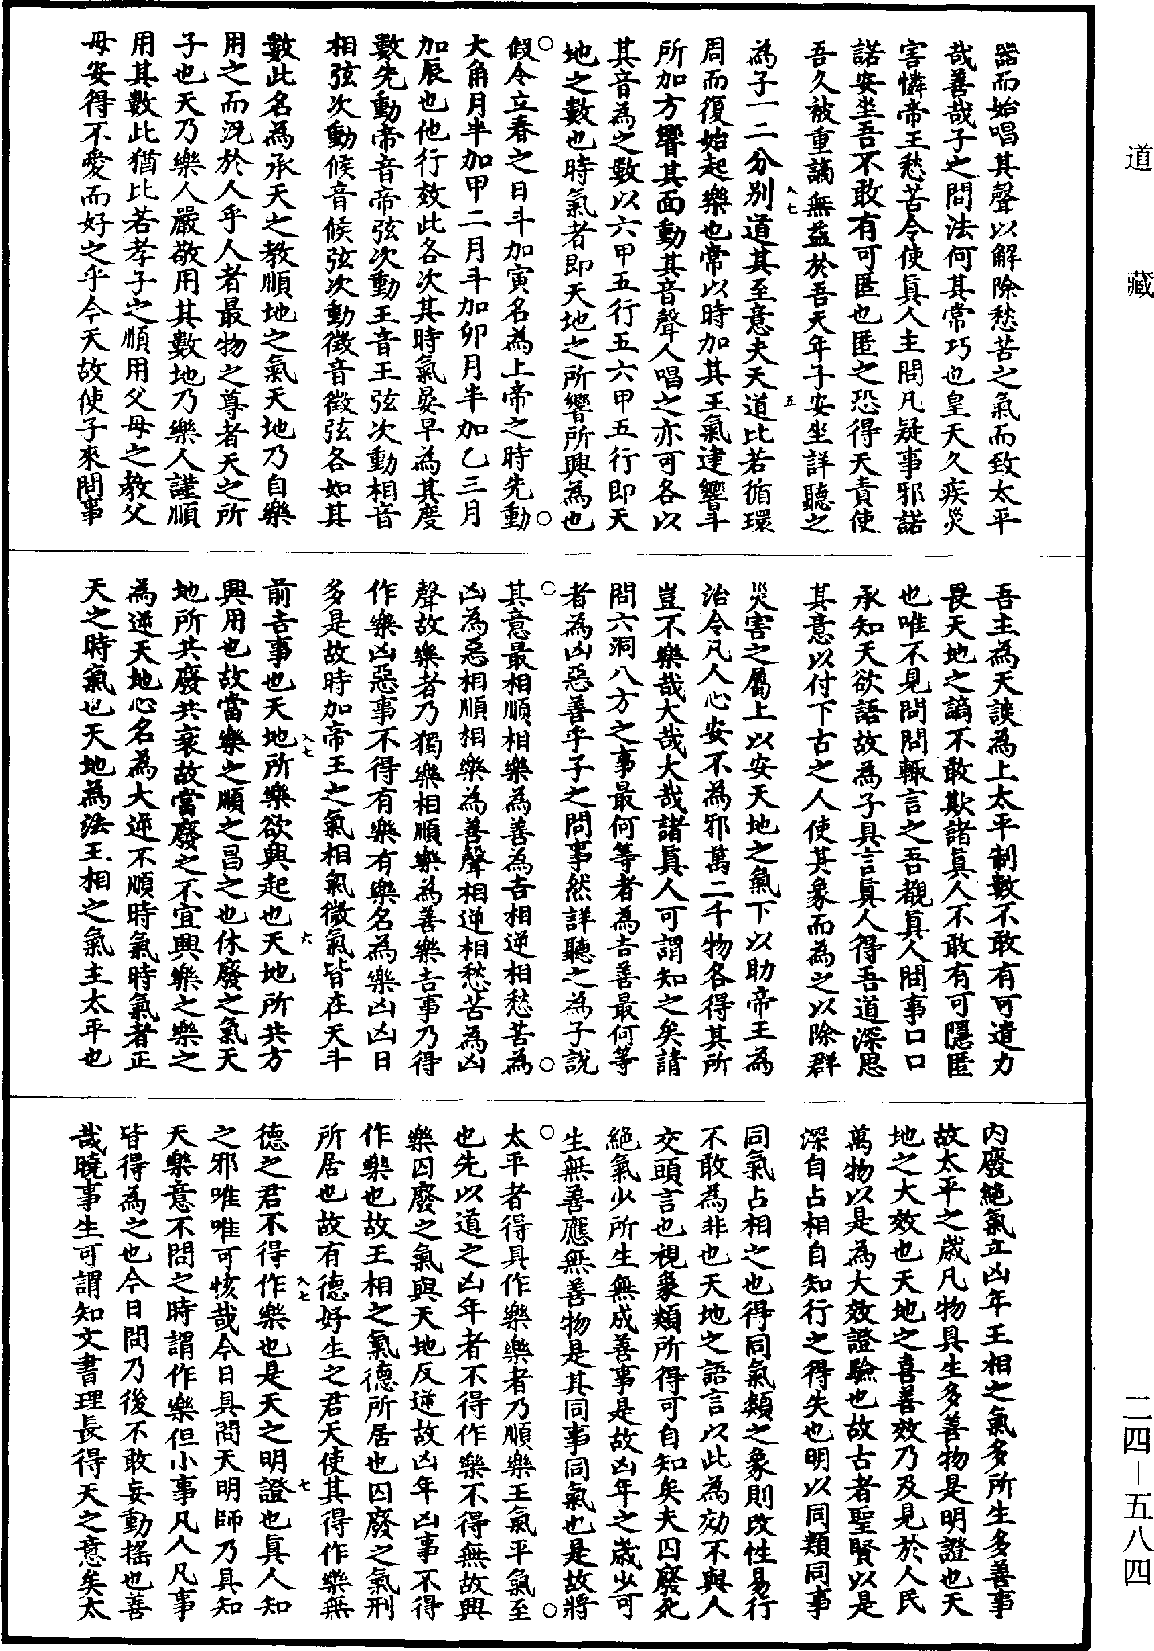 道藏
器而始唱其聲以解除愁苦之氣而致太平
哉善哉子之問法何其常巧也皇天久疾災
害憐帝王愁苦令使真人主問凡疑事邪諾
諾安坐吾不敢有可匿也匿之恐得天責使
吾久被重謫無益於吾天年子安坐詳聽之
為子一二分别道其至意夫天道比若循環
周而復始起樂也常以時加其王氣建響斗
所加方響其面動其音聲人唱之亦可各以
其音為之數以六甲五行五六甲五行即天
地之數也時氣者即天地之所響所興為也
假令立春之日斗加寅名為上帝之時先動
大角月半加甲二月斗加卯月半加乙三月
加辰也他行效此各次其時氣晏早為其度
數先動帝音帝弦次動王音王弦次動相音
相弦次動候音候弦次動微音微弦各如其
數此名為承天之教順地之氣天地乃自樂
用之而況於人乎人者最物之尊者天之所
子也天乃樂人嚴敬用其數地乃樂人謹順
用其數此猶比若孝子之順用父母之教父
母安得不愛而好之乎今天故使子來問事
八七
五
吾主為天談為上太平制數不敢有可遺力
畏天地之謫不敢欺諸真人不敢有可隱匿
也唯不見問問輒言之吾觀真人問事口口
承知天欲語故為子具言真人得吾道深思
其意以付下古之人使其象而為之以除群
災害之屬上以安天地之氣下以助帝王為
治令凡人心安不為邪萬二千物各得其所
豈不樂哉大哉大哉諸真人可謂知之矣請
問六洞八方之事最何等者為吉善最何等
者為凶惡善乎子之問事然詳聽之為子說
其意最相順相樂為善為吉相逆相愁苦為
凶為惡相順相樂為善聲相逆相愁苦為凶
聲故樂者乃獨樂相順樂為善樂吉事乃得
作樂凶惡事不得有樂有樂名為樂凶凶日
多是故時加帝王之氣相氣微氣皆在天斗
前吉事也天地所樂欲興起也天地所共方
興用也故當樂之順之昌之也休廢之氣天
地所共廢共衰故當廢之不宜興樂之樂之
為逆天地心名為大逆不順時氣時氣者正
天之時氣也天地為法王相之氣主太平也
八七
六
内廢絕氣立凶年王相之氣多所生多善事
故太平之歲凡物具生多善物是明證也天
地之大效也天地之喜善效乃及見於人民
萬物以是為大效證驗也故古者聖賢以是
深自占相自知行之得失也明以同類同事
同氣占相之也得同氣類之象則改性易行
不敢為非也天地之語言以此為効不與人
交頭言也視象類所得可自知矣夫囚廢死
絕氣少所生無成善事是故凶年之歲少可
生無善應無善物是其同事同氣也是故將
太平者得具作樂樂者乃順樂王氣平氣至
也先以道之凶年者不得作樂不得無故興
樂囚廢之氣與天地反逆故凶年凶事不得
作樂也故王相之氣德所居也囚廢之氣刑
所居也故有德好生之君天使其得作樂無
德之君不得作樂也是天之明證也真人知
之邪唯唯可恢哉今日具問天明師乃具知
天樂意不問之時謂作樂但小事凡人凡事
皆得為之也今日問乃後不敢妄動搖也善
哉曉事生可謂知文書理長得天之意矣太
八七
七
二四—五八四